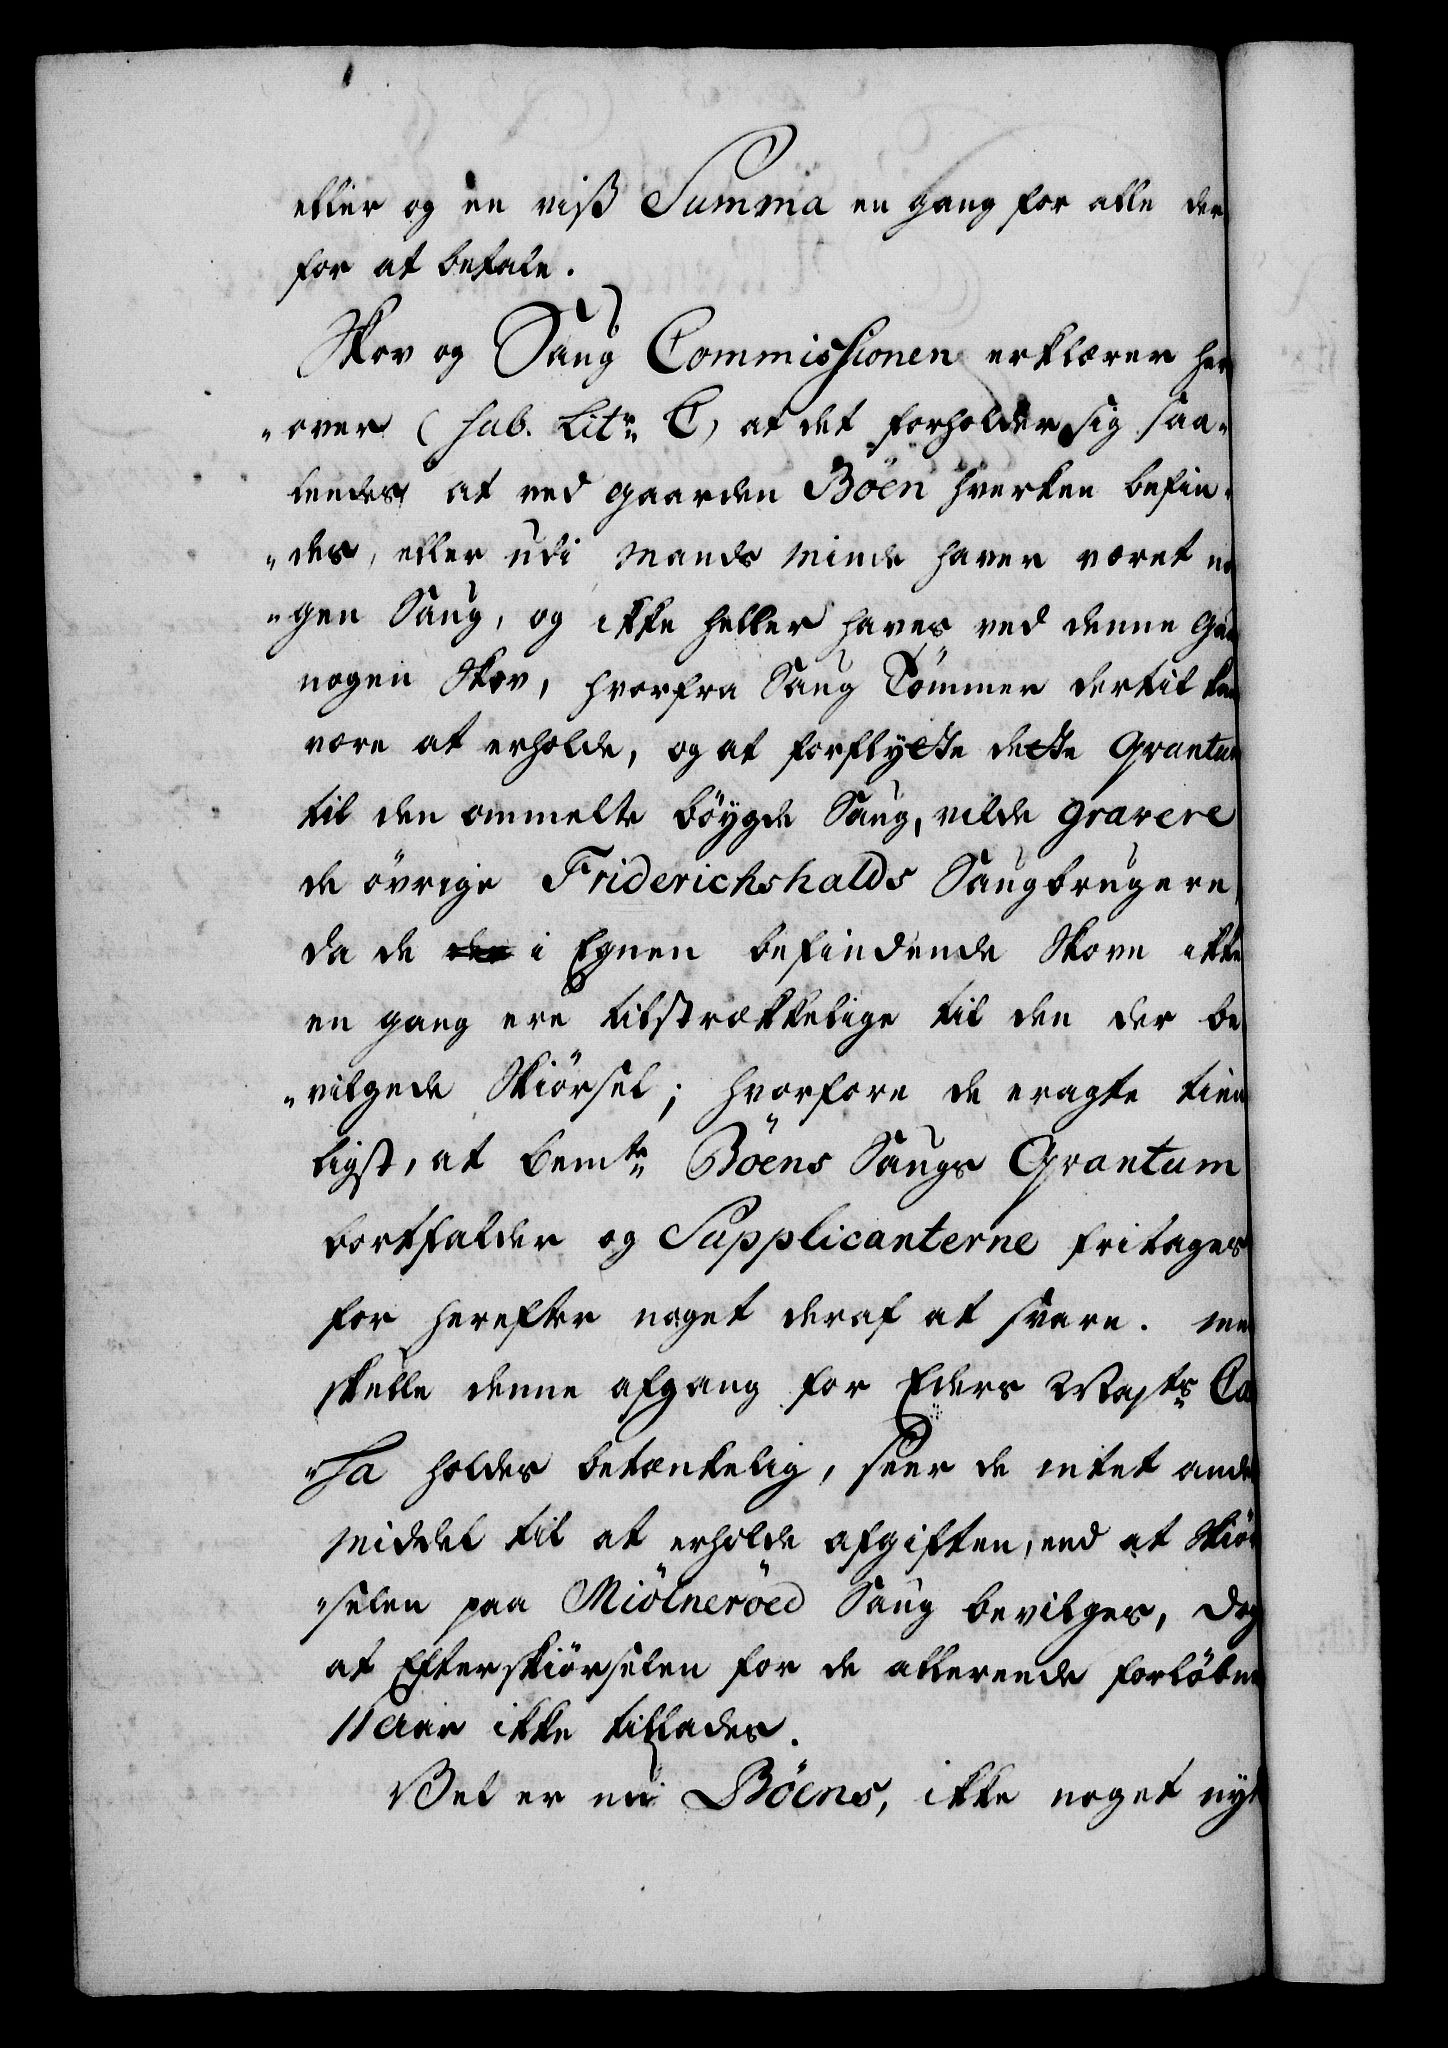 eller og en viss Summa en gang for alle der
for at betale.
Skov og Saug Commissionen erklærer her
over (sub. Litr. C) at det forholder sig saa-
leedes at ved gaarden Böen hverken befin-
des, eller udi Mands Minde haver været no
gen Saug, og ikke heller haves ved denne Gaa
nogen Skov, hvorfra Saug Tömmer dertil kan
være at erholde, og at forflytte dette Qvantum
til den ommelte böygde Saug, vilde gravere
de övrige Friderichshalds Saugbrugere,
da de i Egnen befindende Skove ikke
en gang ere tilstrækkelige til den der be
vilgede Skiörsel; hvorfore de eragte tien
ligst, at bemte Böens Saugs Qvantum
bortfalder og Supplicanterne fritages
for herefter noget deraf at svare. Men
skulle denne afgang for Eders Mayts Ca
ssa holdes betænkelig, seer de intet andet
Middel til at erholde afgiften, end at Skiör
selen paa Miölneröed Saug bevilges, dog
at Efterskiörselen for de allereede forløbne
11 Aar ikke tillades.
Vel er nu Böens, ikke noget nyt